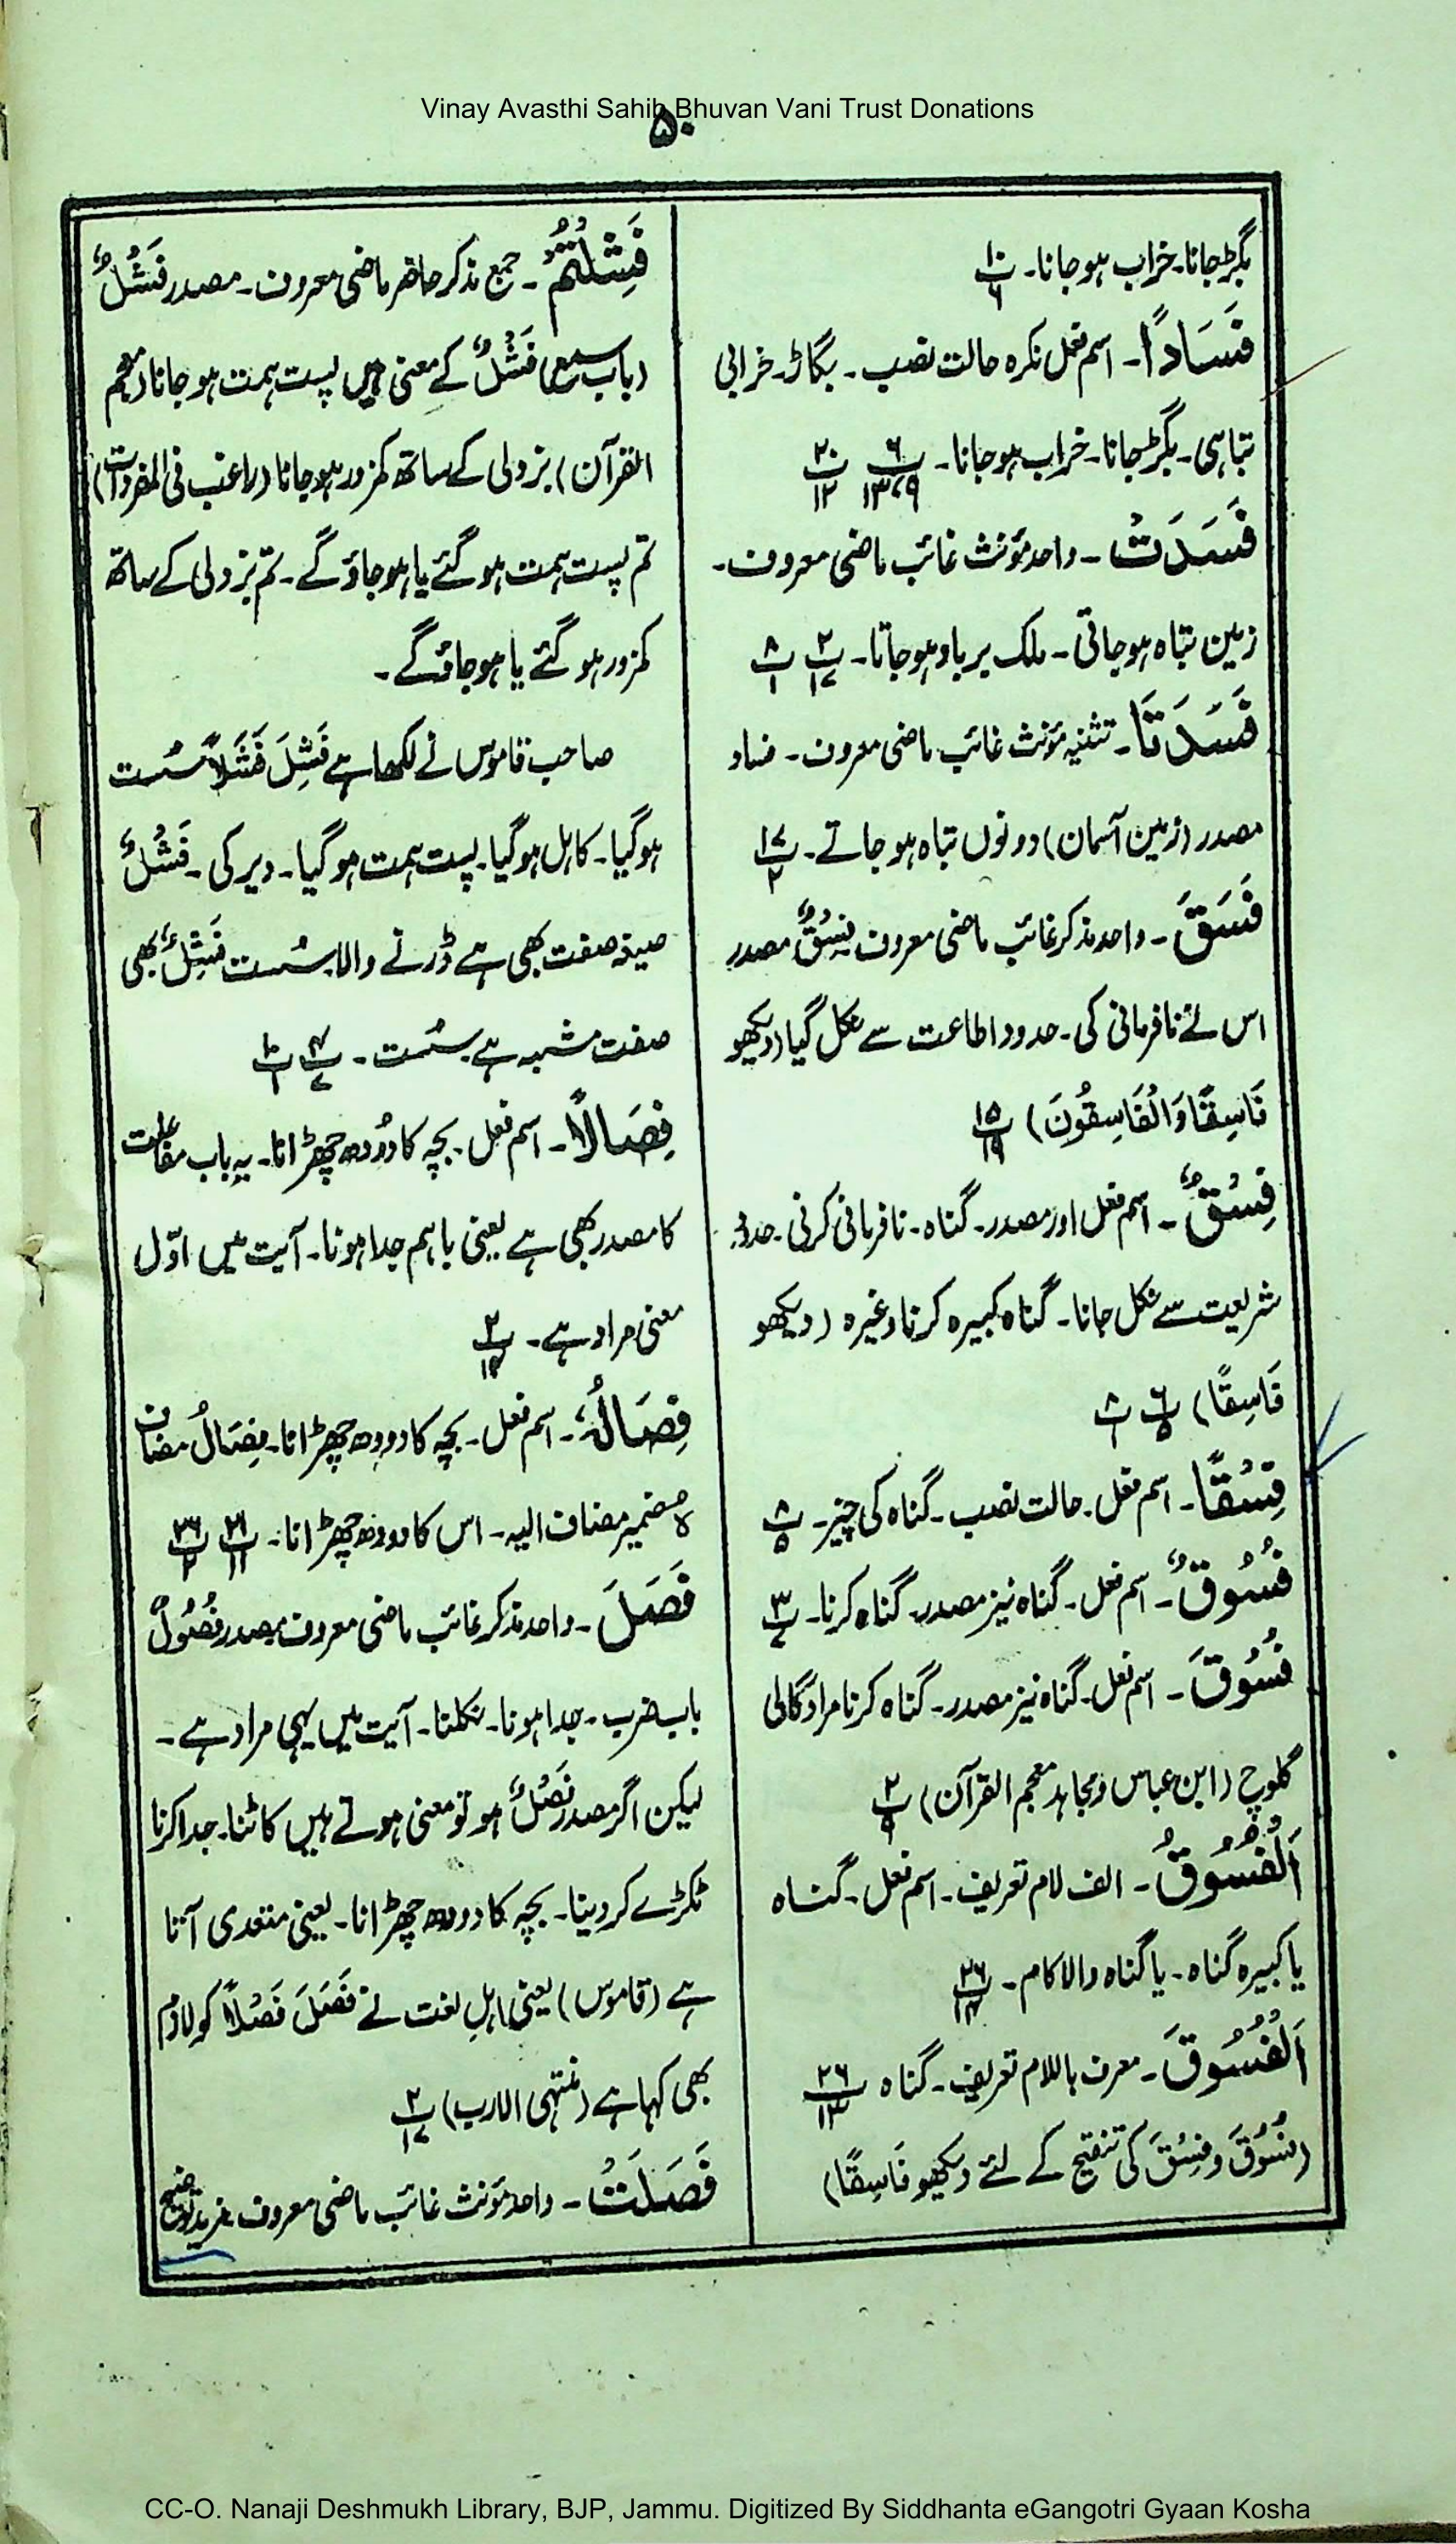 Vinay Avasthi Sahib Bhuvan Vani Trust Donations
۵۰
بگڑجانا۔ خراب ہوجانا۔ پ۱۰/۶
فَسَادًا۔ اسم فعل نکرہ حالت نصب۔ بگاڑ۔ خرابی
تباہی۔ بگڑجانا۔ خراب ہوجانا۔ پ۶/۹،۱۳ پ۲۰/۱۲
فَسَدَتْ۔ واحد مؤنث غائب ماضی معروف۔
زمین تباہ ہوجاتی۔ ملک برباد ہوجاتا۔ پ۲/۱۷ پ۱۸/۱
فَسَدَتَا۔ تثنیہ مؤنث غائب ماضی معروف۔ فساد
مصدر (زمین آسمان) دونوں تباہ ہوجاتے۔ پ۱۷/۲
فَسَقَ۔ واحد مذکر غائب ماضی معروف فِسْقٌ مصدر
اس نے نافرمانی کی۔ حدود اطاعت سے نکل گیا (دیکھو
فَاسِقًا وَالْفَاسِقُونَ) پ۱۵/۱۹
فِسْقٌ۔ اسم فعل اور مصدر۔ گناہ۔ نافرمانی کرنی۔ حدود
شریعت سے نکل جانا۔ گناہ کبیرہ کرنا وغیرہ (دیکھو
فَاسِقًا) پ۶/۵ پ۸/۱
فِسْقًا۔ اسم فعل۔ حالت نصب۔ گناہ کی چیز۔ پ۸/۵
فُسُوْقٌ۔ اسم فعل۔ گناہ نیز مصدر۔ گناہ کرنا۔ پ۳/۷
فُسُوْقَ۔ اسم فعل۔ گناہ نیز مصدر۔ گناہ کرنا مراد گالی
گلوچ (ابن عباس و مجاہد معجم القرآن) پ۲/۹
اَلْفُسُوْقُ۔ الف لام تعریف۔ اسم فعل۔ گناہ
یا کبیرہ گناہ۔ یا گناہ والا کام۔ پ۲۶/۱۴
اَلْفُسُوْقَ۔ معرف باللام تعریف۔ گناہ پ۲۶/۱۳
(فُسُوْقَ و فِسْقَ کی تنقیح کے لئے دیکھو فَاسِقًا)
فَشِلْتُمْ۔ جمع مذکر حاضر ماضی معروف۔ مصدر فَشْلٌ
(باب سمع) فَشْلٌ کے معنی ہیں پست ہمت ہوجانا (معجم
القرآن) بزدلی کے ساتھ کمزور ہوجانا (راغب فی المفردات)
تم پست ہمت ہوگئے یا ہوجاؤ گے۔ تم بزدلی کے ساتھ
کمزور ہوگئے یا ہوجاؤ گے۔
صاحب قاموس نے لکھا ہے فَشِلَ فَشَلًا سُست
ہوگیا۔ کاہل ہوگیا۔ پست ہمت ہوگیا۔ دیر کی۔ فَشْلٌ
صیغہ صفت بھی ہے ڈرنے والا سُست فَشِلٌ بھی
صفت مشبہ ہے سُست۔ پ۴/۷ پ۱۰/۱
فِصَالًا۔ اسم فعل۔ بچہ کا دُودھ چھڑانا۔ یہ باب مفاعلت
کا مصدر بھی ہے یعنی باہم جدا ہونا۔ آیت میں اوّل
معنی مراد ہے۔ پ۲/۱۴
فِصَالُہٗ۔ اسم فعل۔ بچہ کا دودھ چھڑانا۔ فِصَالُ مضاف
ہٗ ضمیر مضاف الیہ۔ اس کا دودھ چھڑانا۔ پ۲۱/۱۱ پ۲۶/۲
فَصَلَ۔ واحد مذکر غائب ماضی معروف مصدر فُصُوْلٌ
باب ضرب۔ جدا ہونا۔ نکلنا۔ آیت میں یہی مراد ہے۔
لیکن اگر مصدر فَصْلٌ ہو تو معنی ہوتے ہیں کاٹنا۔ جدا کرنا
ٹکڑے کر دینا۔ بچہ کا دودھ چھڑانا۔ یعنی متعدی آتا
ہے (قاموس) یعنی اہل لغت نے فَصَلَ فَصْلًا کو لازم
بھی کہا ہے (منتہی الارب) پ۲/۱۷
فَصَلَتْ۔ واحد مؤنث غائب ماضی معروف مزید توضیح
CC-O. Nanaji Deshmukh Library, BJP, Jammu. Digitized By Siddhanta eGangotri Gyaan Kosha